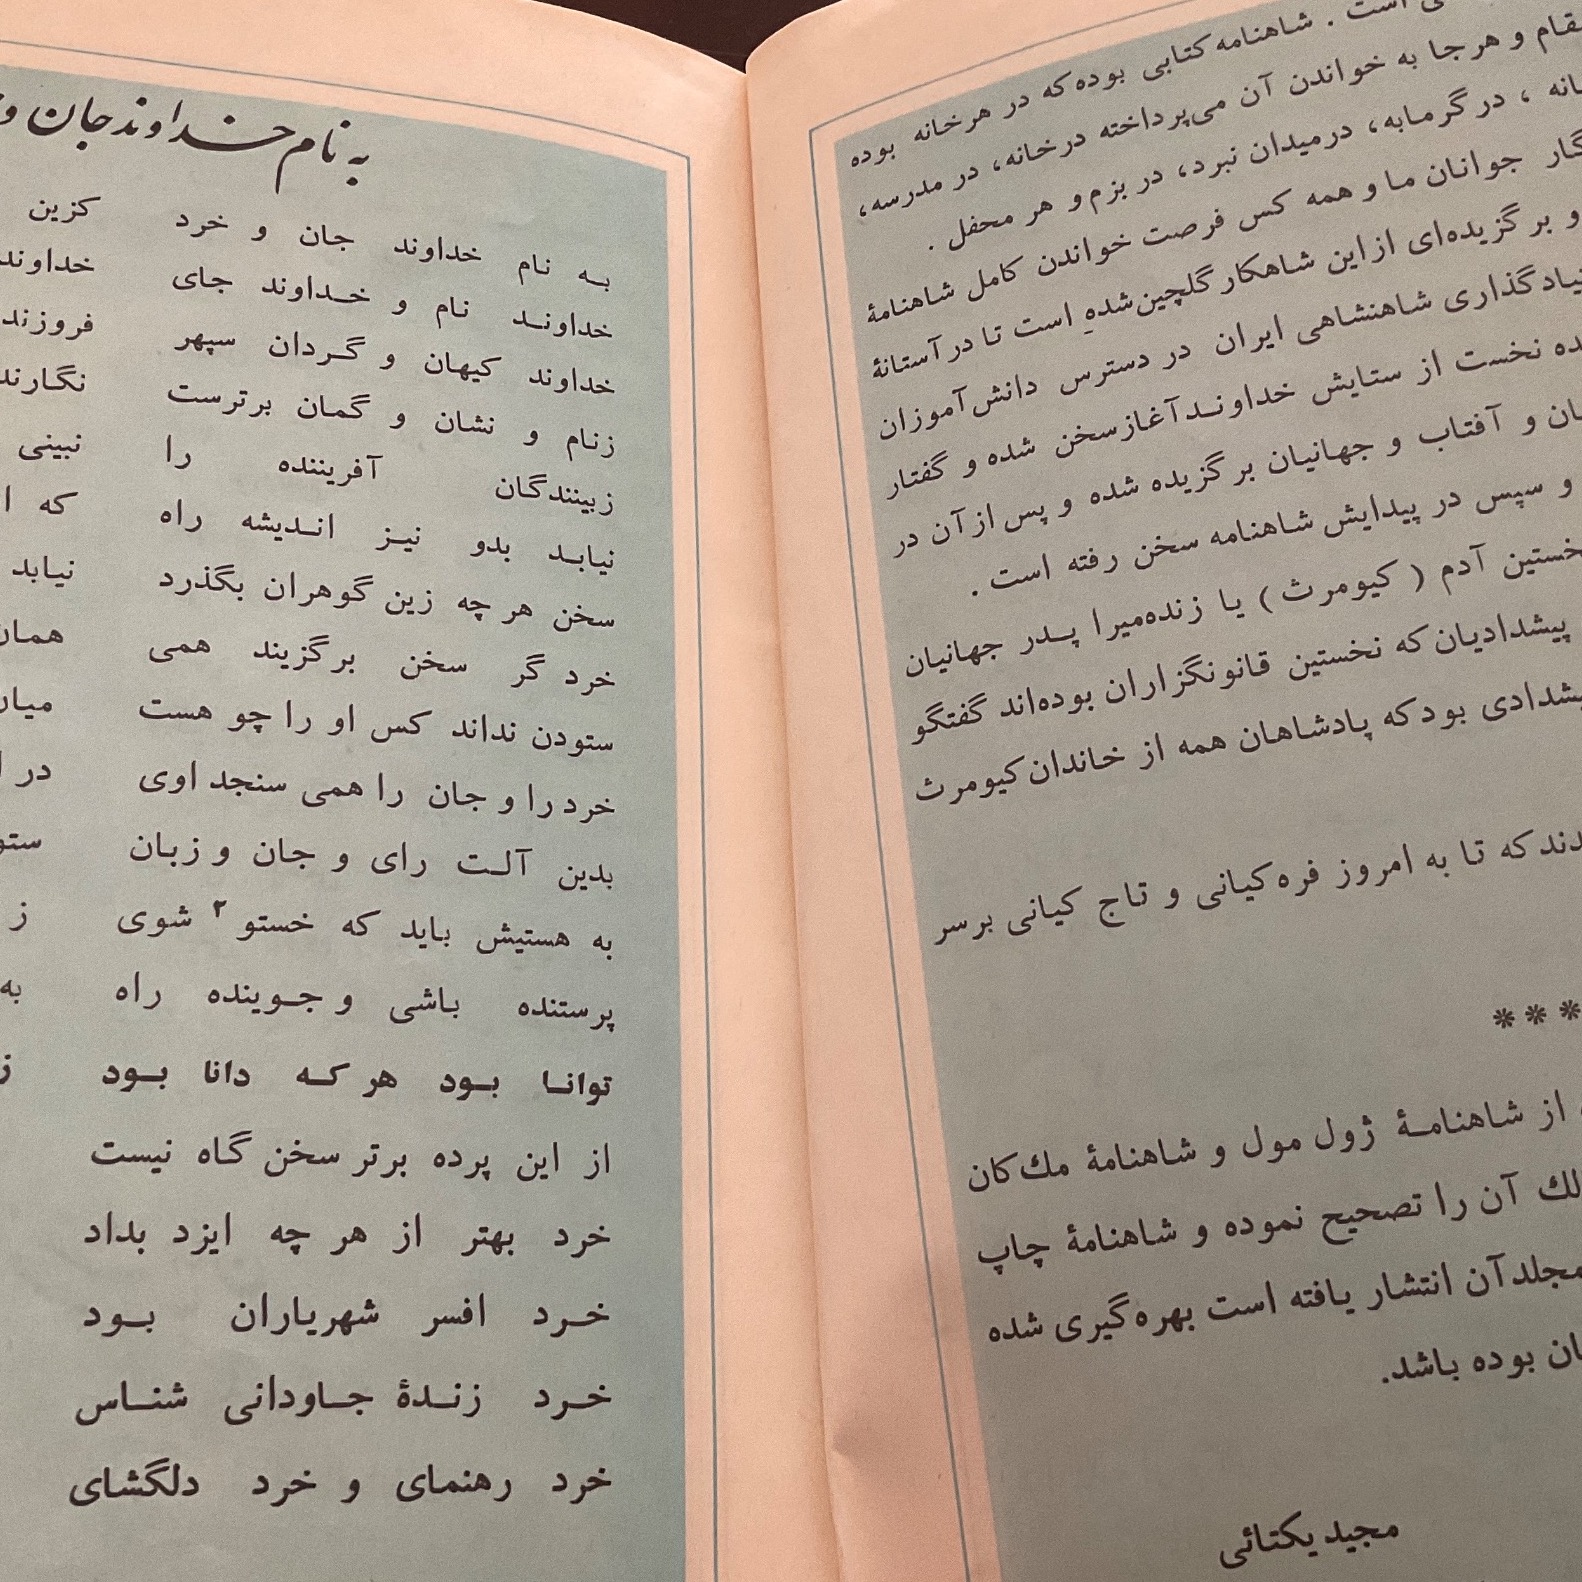 است . شاهنامه کتابی بوده که در هرخانه بوده
و هرجا به خواندن آن می‌پرداخته درخانه، در مدرسه،
، در گرمابه، درمیدان نبرد، در بزم و هر محفل .
جوانان ما و همه کس فرصت خواندن کامل شاهنامهٔ
و برگزیده‌ای از این شاهکار گلچین‌شده است تا در آستانهٔ
شاهنشاهی ایران در دسترس دانش‌آموزان
نخست از ستایش خداوند آغاز سخن شده و گفتار
و آفتاب و جهانیان برگزیده شده و پس از آن در
و سپس در پیدایش شاهنامه سخن رفته است .
آدم ( کیومرث ) یا زنده‌میرا پدر جهانیان
پیشدادیان که نخستین قانونگزاران بوده‌اند گفتگو
بود که پادشاهان همه از خاندان کیومرث
که تا به امروز فره کیانی و تاج کیانی برسر
***
از شاهنامهٔ ژول مول و شاهنامهٔ مك کان
آن را تصحیح نموده و شاهنامهٔ چاپ
مجلد آن انتشار یافته است بهره‌گیری شده
بوده باشد.
مجید یکتائی
به نام خداوند جان و
به نام خداوند جان و خرد کزین
خداوند نام و خداوند جای خداوند
خداوند کیهان و گردان سپهر
زنام و نشان و گمان برترست
زبینندگان آفریننده را نبینی
نیابد بدو نیز اندیشه راه که
سخن هر چه زین گوهران بگذرد نیابد
خرد گر سخن برگزیند همی
ستودن نداند کس او را چو هست
خرد را و جان را همی سنجد اوی در
بدین آلت رای و جان و زبان
به هستیش باید که خستو ۲ شوی ز
پرستنده باشی و جوینده راه به
توانا بود هر که دانا بود ز
از این پرده برتر سخن گاه نیست
خرد بهتر از هر چه ایزد بداد
خرد افسر شهریاران بود
خرد زندهٔ جاودانی شناس
خرد رهنمای و خرد دلگشای